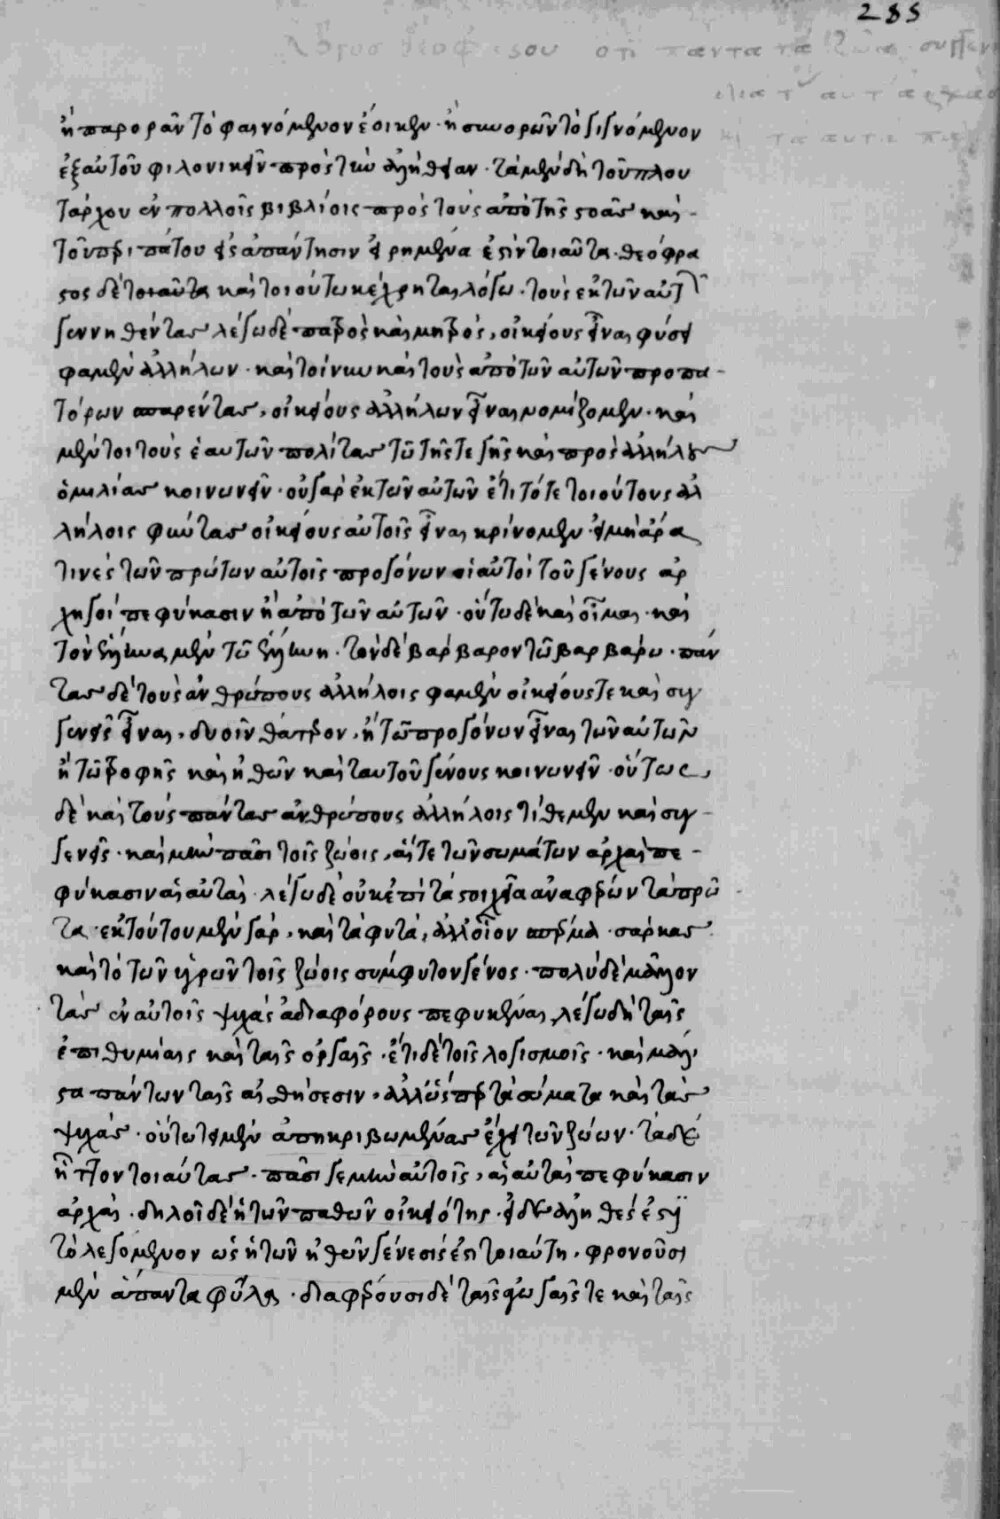 285
ὅτι πάντα τὰ ζῶα συγγεν
ἢ παρορᾶν τὸ φαινόμενον ἔοικεν · ἢ συνορῶν τὸ γιγνόμενον
ἐξ αὐτοῦ φιλονικεῖν πρὸς τὴν ἀλήθειαν · τὰ μὲν δὴ τοῦ πλου
τάρχου ἐν πολλοῖς βιβλίοις πρὸς τοὺς ἀπὸ τῆς στοᾶς καὶ
τοῦ περιπάτου εἰς ἀπάντησιν εἰρημένα ἐστὶν τοιαῦτα · θεόφρα
στος δὲ τοιαῦτα καὶ τοιούτω κέχρηται λόγω · τοὺς ἐκ τῶν αὐτῶν
γεννηθέντας λέγω δὲ πατρὸς καὶ μητρὸς, οἰκείους εἶναι φύσει
φαμὲν ἀλλήλων · καὶ τοίνυν καὶ τοὺς ἀπὸ τῶν αὐτῶν προπα
τόρων σπαρέντας, οἰκείους ἀλλήλων εἶναι νομίζομεν · καὶ
μέντοι τοὺς ἑαυτῶν πολίτας τῶ τῆς τε γῆς καὶ πρὸς ἀλλήλους
ὁμιλίας κοινωνεῖν · οὐ γὰρ ἐκ τῶν αὐτῶν ἔτι τότε τοιούτους ἀλ
λήλοις φύντας οἰκείους αὐτοῖς εἶναι κρίνομεν · εἰ μὴ ἄρα
τινὲς τῶν πρώτων αὐτοῖς προγόνων οἱ αὐτοὶ τοῦ γένους ἀρ
χηγοὶ πεφύκασιν ἢ ἀπὸ τῶν αὐτῶν · οὕτω δὲ καὶ οἶμαι · καὶ
τὸν ἕλληνα μὲν τῶ ἕλληνι · τὸν δὲ βάρβαρον τῶ βαρβάρω · πάν
τας δὲ τοὺς ἀνθρώπους ἀλλήλοις φαμὲν οἰκείους τε καὶ συγ
γενεῖς εἶναι, δυοῖν θάτερον, ἢ τῶ προγόνων εἶναι τῶν αὐτῶν
ἢ τῶ τροφῆς καὶ ἠθῶν καὶ ταυτοῦ γένους κοινωνεῖν · οὕτως
δὲ καὶ τοὺς πάντας ἀνθρώπους ἀλλήλοις τίθεμεν καὶ συγ
γενεῖς · καὶ μὴν πᾶσι τοῖς ζώοις, αἵ τε τῶν σωμάτων ἀρχαὶ πε
φύκασιν αἱ αὐταὶ · λέγω δὲ οὐκ ἐπὶ τὰ στοιχεῖα ἀναφέρων τὰ πρῶ
τα · ἐκ τούτου μὲν γὰρ, καὶ τὰ φυτά, ἀλλ' οἷον σπέρμα · σάρκας
καὶ τὸ τῶν ὑγρῶν τοῖς ζώοις σύμφυτον γένος · πολὺ δὲ μᾶλλον
τὰς ἐν αὐτοῖς ψυχὰς ἀδιαφόρους πεφυκέναι, λέγω δὴ ταῖς
ἐπιθυμίαις καὶ ταῖς ὀργαῖς · ἔτι δὲ τοῖς λογισμοῖς · καὶ μάλι
στα πάντων ταῖς αἰσθήσεσιν, ἀλλ' ὥσπερ τὰ σώματα καὶ τὰς
ψυχὰς · οὕτω τὰ μὲν ἀπηκριβωμένας ἔχει τῶν ζώων · τὰ δὲ
ἧττον τοιαύτας · πᾶσί γε μὴν αὐτοῖς, αἱ αὐταὶ πεφύκασιν
ἀρχαὶ · δηλοῖ δὲ ἡ τῶν παθῶν οἰκειότης · εἰ δὲ ἀληθὲς ἐστὶ
τὸ λεγόμενον ὡς ἡ τῶν ἠθῶν γένεσις ἐστι τοιαύτη, φρονοῦσι
μὲν ἅπαντα φῦλα · διαφέρουσι δὲ ταῖς ἀγωγαῖς τε καὶ ταῖς